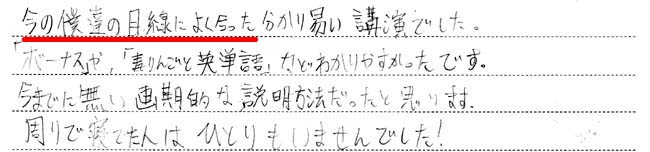 今の僕達の目線によく合った分かり易い講演でした。
「ボーナス」や、「青りんごと英単語」などわかりやすかったです。
今までに無い画期的な説明方法だったと思います。
周りで寝てた人はひとりもいませんでした!